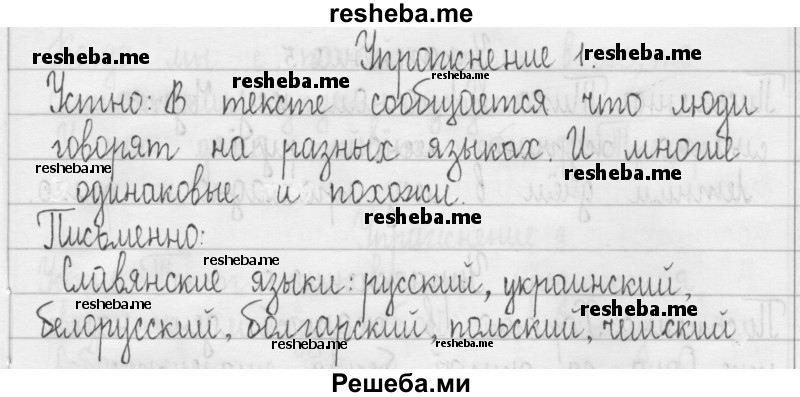 resheba.me
resheba.me Упражнение 1. resheba.me
resheba.me resheba.me
Устно: В тексте сообщается что люди
говорят на разных языках. И многие
resheba.me resheba.me
одинаковые и похожи.
resheba.me
Письменно:
resheba.me
Славянские языки: русский, украинский,
resheba.me resheba.me
белорусский, болгарский, польский, чешский
resheba.me resheba.me
Решеба.ми